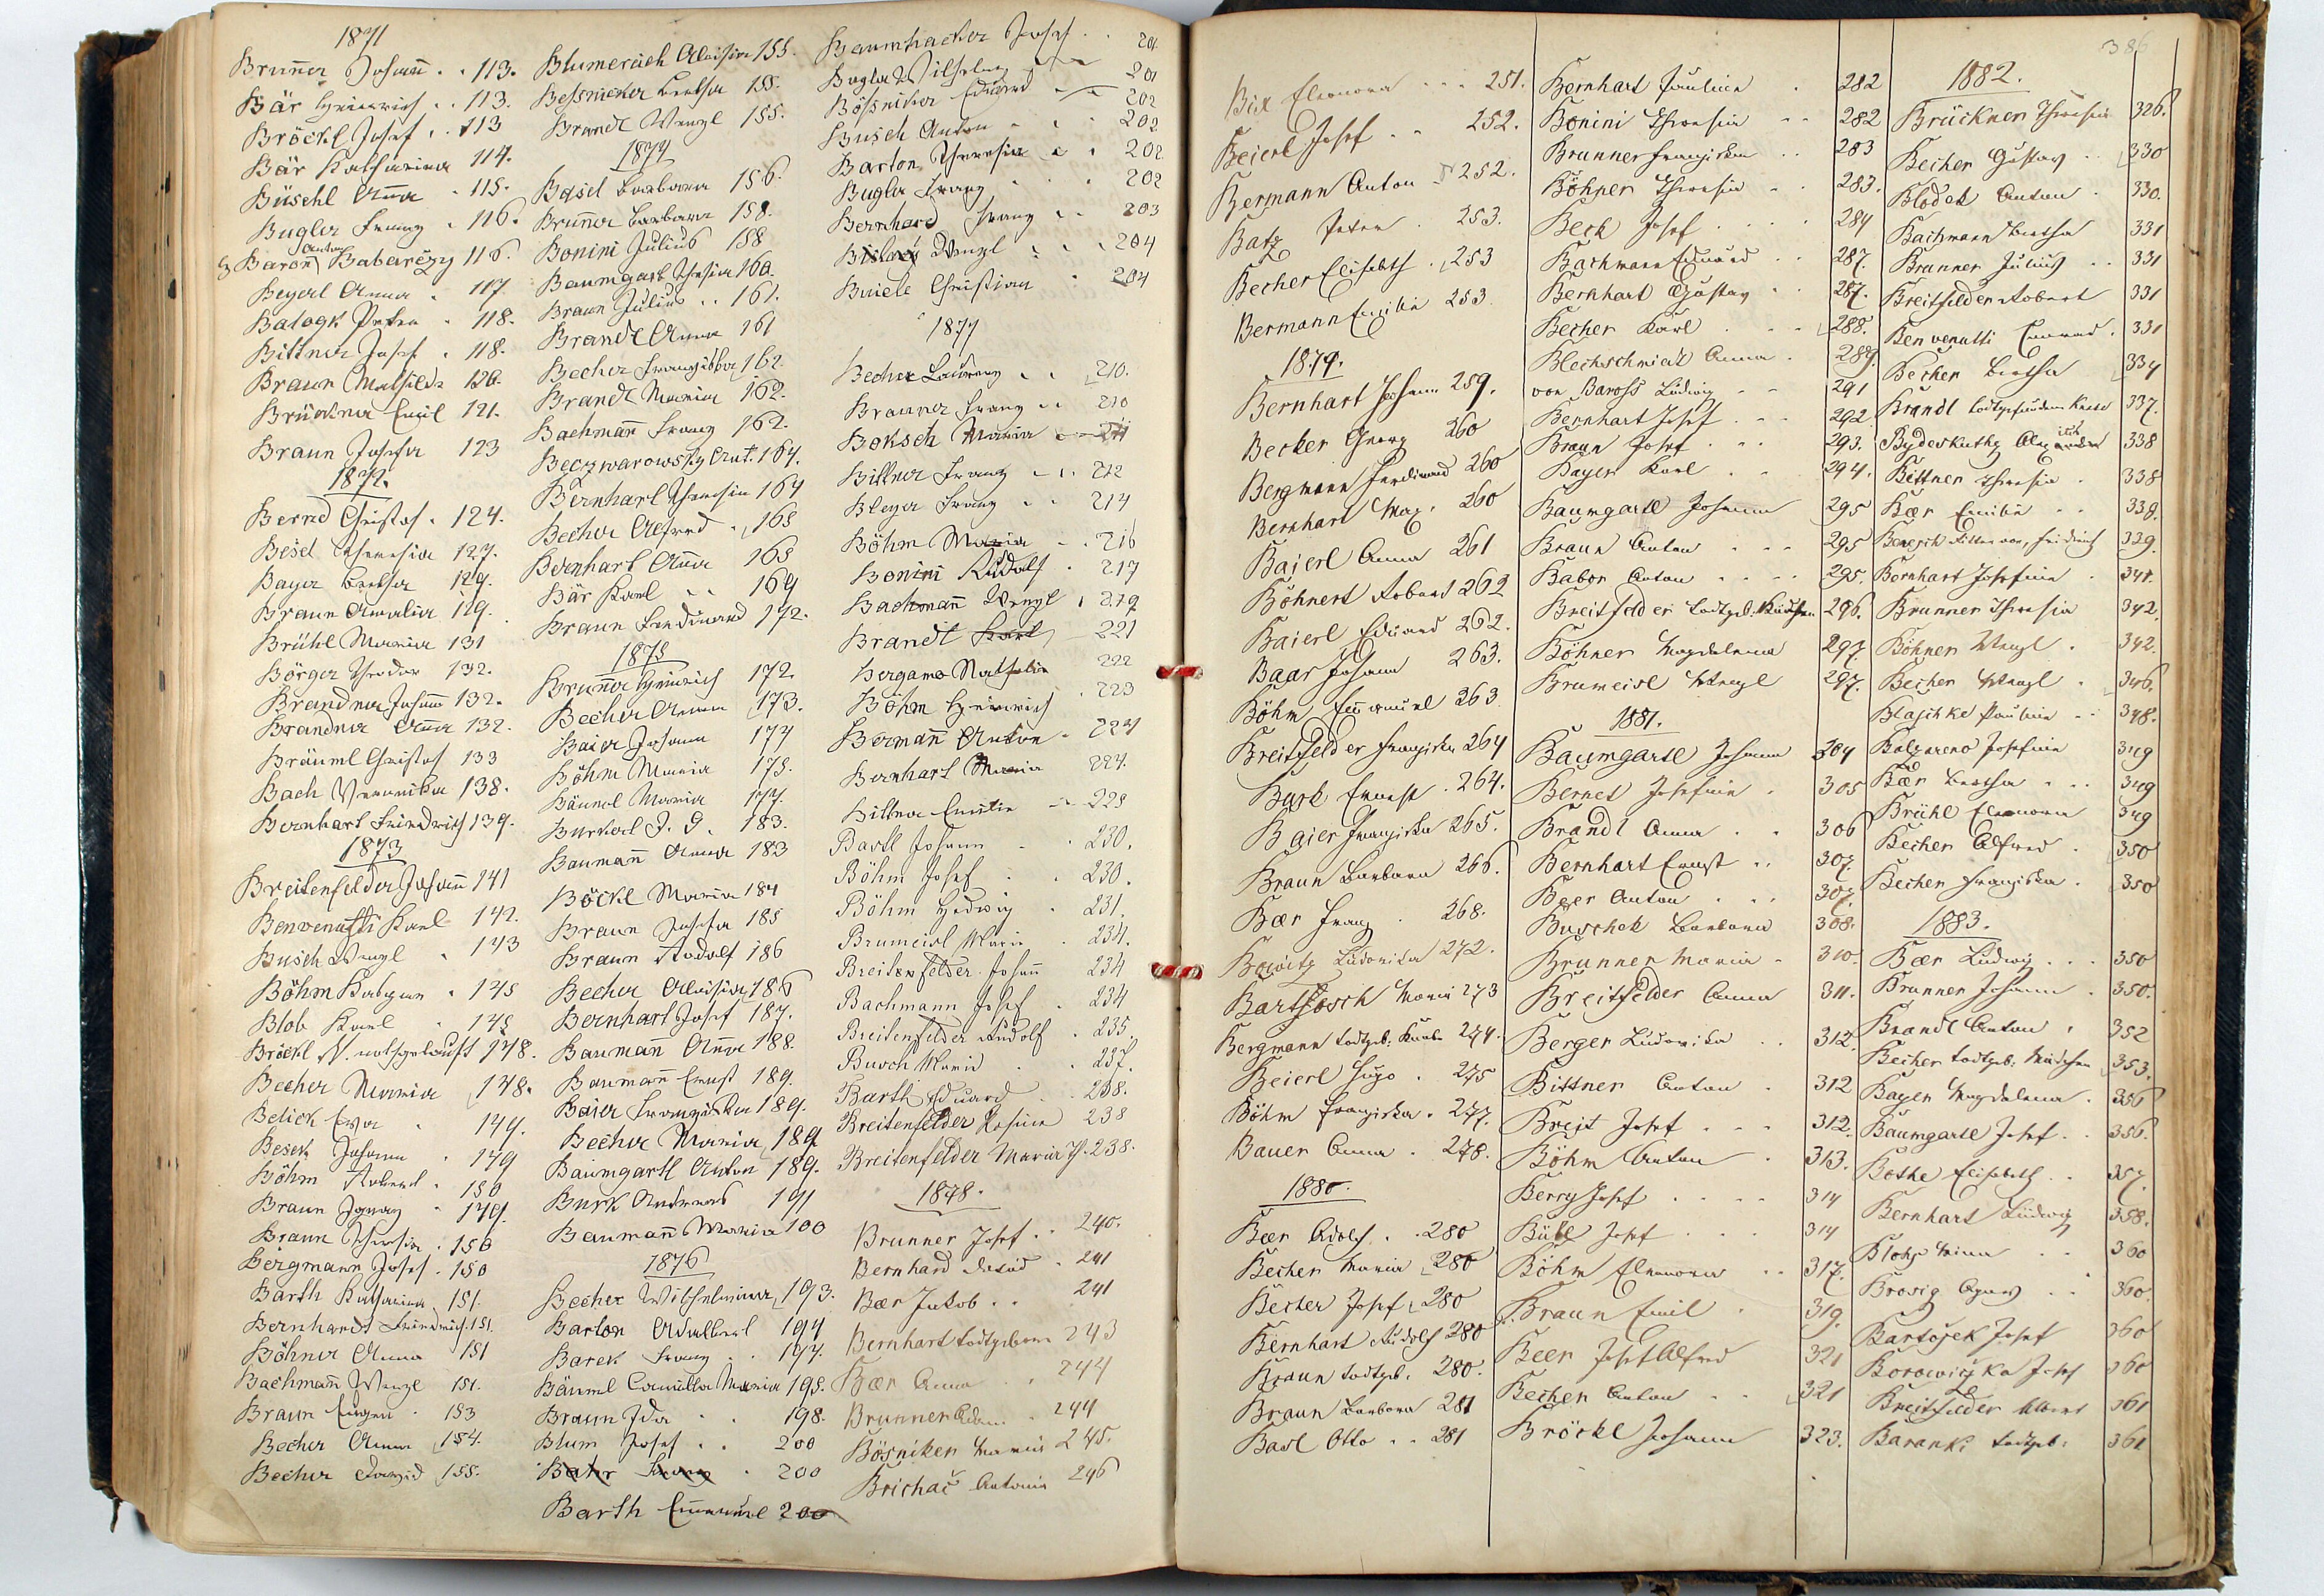 1871
Brunner Johann . . 113.
Bär Heinrich . . 113.
Bröckl Josef . . 113
Bär Katharina 114.
Büschl Anna . 115.
Bugler Franz . 116.
Anton
Baron Babarczy 116.
Beyerl Anna . 117
Balogk Peter . 118.
Bittner Josef . 118.
Braun Mathilde 120.
Brückner Emil 121.
Braun Josefa 123
1872.
Bernd Christof . 124.
Besel Theresia 127.
Bayer Bertha 129.
Braun Amalia 129.
Brühl Maria 131
Börger Theodor 132.
Brandner Johann 132.
Brandner Anna 132.
Bräuml Christof 133
Bach Veronika 138.
Bernhart Friedrich 139.
1873
Breitenfelder Johann 141
Benvenutti Karl 142.
Busch Wenzl . 143
Böhm 145
Blob Karl 145
Bröckl N. nothgetauft 148.
Becher Maria 148.
Belick Eva 149.
Besek Johann . 149
Böhm Robert . 150
Braun Ignaz . 149.
Braun Theresia . 150
Bergmann Josef . 150
Barth Katharina . 151.
Bernhardt Friedrich 151.
Böhner Anna 151
Bachmann Wenzl 151.
Braun Eugen . 153
Becher Anna 154.
Becher David 155.
Blumerich Aloisia 155.
Bessnicker Bertha 155.
Brandl Wenzl 155.
1874
Basel Barbara 156.
Brunner Barbara 158.
Bonini Julius 158
Baumgartl Thesia 160.
Braun Julius . . 161.
Brandl Anna 161
Becher Franziska 162.
Brandl Maria 162.
Bachmann Franz 162.
Beczwarowsky Ant. 164.
Bernhart Theresia 164
Becher Alfred . 165
Bernhart Anna 165
Bär Karl . . 169
Braun Ferdinand 172.
1875
Brunner Heinrich 172.
Becher Anna 173.
Baier Johann 174
Böhm Maria 175.
Bäuml Maria 177.
Burkerl J. G. 183.
Baumann Anna 183
Böckl Maria 184
Braun Josefa 185
Braun Rudolf 186
Becher Aloisia 186
Bernhart Josef 187.
Baumann Anna 188.
Baumann Ernst 189.
Baier Franziska 189.
Becher Maria 189
Baumgartl Anton 189.
Burk Andreas 191
Baumann Maria 100
1876
Becher Wilhelmina 193.
Barton Adalbert 194
Barek Franz . . 197.
Bäuml Camilla Maria 195.
Braun Ida . . 198.
Blum Josef . . 200
Bahr Franz . 200
Barth Emanuel 200
Baumhacker Josef . . 201
Bugler Wilhelm 201
Bössnicker Eduard 202
Busch Anton . . 202
Barton Theresia . . 202
Bugler Franz . . 202
Bernhard Franz . . 203
Wenzl . . 204
Buiele Christian . 204
1877
Becher Laurenz . . 210.
Brauner Franz . . 210
Boksch Maria 211
Bittner Franz . . . 212
Bleyer Franz . . 214
Böhm Maria . . 216
Bonini Rudolf . 217
Bachmann Wenzl . 219
Brandl Karl 221
Bergama Nathalia 222
Böhm Heinrich . 223
Bermann Anton . 224
Bernhart Maria 224.
Bittner Emilie . . 225
Bartl Johann . . 230.
Böhm Josef . . 230.
Böhm Hedwig . 231.
Brumeisl Marie . 234.
Breitenfelder Johann 234
Bachmann Josef . 234
Breitenfelder Rudolf . 235
Busch Maria . . 237.
Barth Eduard . . 238.
Breitenfelder Rosina 238
Breitenfelder Maria Th. 238.
1878.
Brunner Josef . . 240.
Bernhard David . 241
Bær Jakob . . 241
Bernhart todtgeboren 243
Bær Anna . . 244
Brunner Adam . 244
Bösniker Maria 245.
Brichač Antonia 246
386
Bix Eleonora . . . 251.
Beierl Josef . . 252.
Bermann Anton 252.
Batz Peter . 253.
Becher Elisabeth . 253
Bermann Emilie 253
1879.
Bernhart Johann 259.
Becker Georg 260
Bergmann Ferdinand 260
Bernhart Max . 260
Baierl Anna 261
Böhnert Robert 262
Baierl Eduard 262.
Baar Johann 263.
Böhm Emanuel 263
Breitfelder Franziska 264
Burk Ernest . 264.
Baier Franziska 265.
Braun Barbara 266.
Bær Franz . 268.
Ludovika 272.
Bartosch Maria 273
Bergmann todtgeb. Knabe 274.
Beierl Hugo . 275
Böhm Franziska . 277.
Bauer Anna . 278.
1880.
Bær Adolf . . 280
Becher Maria 280
Becher Josef 280
Bernhart Rudolf 280
Braun todtgeb. 280.
Braun Barbara 281
Basl Otto . . 281
Bernhart Pauline . 282
Bonini Theresia . . 282
Brunner Franziska . . 283
Böhner Theresia . . 283.
Beck Josef . . . 284
Bachmann Eduard . . 287.
Bernhart Gustav . . 287.
Becher Karl . . . 288.
Blechschmidt Anna . 289.
von Baross Ludwig . . 291
Bernhart Josef . . . 292
Braun Josef . . . 293.
Bayer Karl . . 294.
Baumgartl Johann 295
Braun Anton . . . 295
Babor Anton . . . . 295.
Breitfelder todtgeb. Mädchen 296.
Böhner Magdalena 297.
Brumeisl Wenzl 297.
1881.
Baumgartl Johann 304
Bernet Josefine . 305
Brandl Anna . . 306
Bernhart Ernst . . 307.
Beer Anton . . . 307.
Buschek Barbara 308.
Brunner Maria . 310.
Breitfelder Anna 311.
Berger Ludovika . . 312.
Bittner Anton . 312
Breit Josef . . . 312.
Böhm Anton . 313.
Berry Josef . . . . 314
Bühl Josef . . . 314
Böhm Eleonora . . 317.
Braun Emil . 319.
Beer Josef Alfred 321
Becher Anton . . 321
Bröckl Johann 323.
1882.
Brückner Theresia 326.
Becher Gustav . . 330
Blodek Anton . 330.
Bachmann Bertha 331
Brunner Julius . . 331
Breitfelder Robert 331
Benvenutti Conrad . 331
Becher Bertha 334
Brandl todtgefundener Knabe 337.
Bydeskuthy Alexander 338
Bittner Theresia . 338
Bær Emilie . . 338.
Benesch Ritter von, Friedrich 339.
Bernhart Josefine . 341.
Brunner Theresia 342.
Böhner Wenzl . 342.
Becher Wenzl . 346.
Blaschke Pauline . . 348.
Balzareno Josefine 349
Bær Bertha . . . 349
Brühl Eleonora 349
Becher Alfred . 350
Becher Franziska . 350
1883.
Bær Ludwig . . . 350
Brunner Johann . 350.
Brandl Anton . 352
Becher todtgeb. Mädchen 353.
Bayer Magdalena . 356
Baumgartl Josef . . 356.
Bothe Elisabeth . . 357.
Bernhart Ludwig 358.
Mina . . 360
Brosig Agnes . . 360.
Bartosek Josef 360
Borowicka Josef 360
Breitfelder Albert 361
Baranki todtgeb. 361